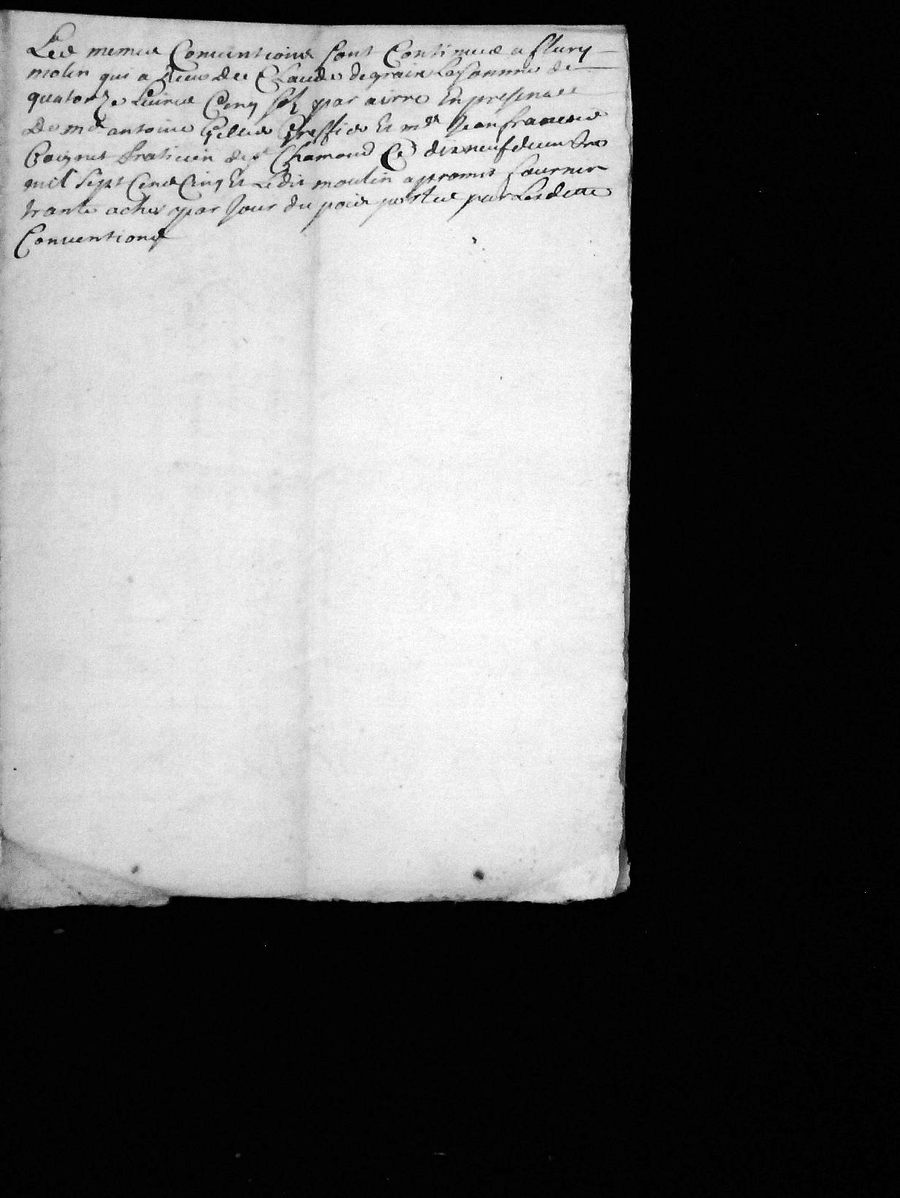 Les memes Conventions sont Continues a fleury
molin qui a Receu de Claude degraix la somme de
quatorze livres Cinq sols par avre En presence
De me antoine Gillier Greffier Et me Jean francois
Coignet Praticien de st Chamond Ce dixneufdecembre
mil sept Cens Cinq Et Ledit moulin a promis fournir
trante aches par Jour du poid portes par Lesdites
Conventions